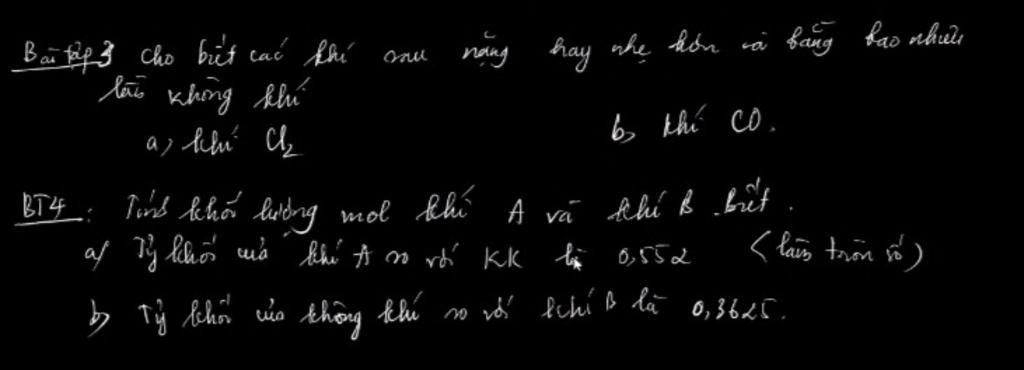 Bài tập 3 Cho biết các khí sau nặng hay nhẹ hơn và bằng bao nhiêu
lần không khí
a, khí Cl2 b, khí CO.
BT4: Tính khối lượng mol khí A và khí B. Biết.
a/ Tỷ khối của khí A so với KK là 0,552 (làm tròn số)
b, Tỷ khối của không khí so với khí B là 0,3625.